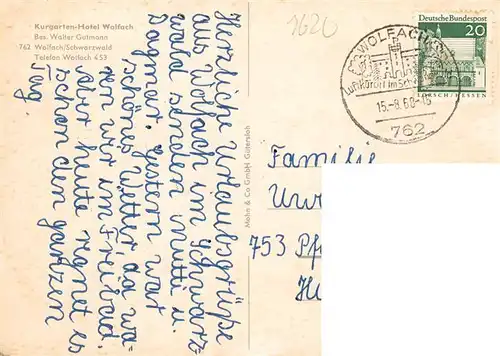 Kurgarten-Hotel Wolfach
Bes. Walter Gutmann
762 Wolfach/Schwarzwald
Telefon Wolfach 453
Herzliche Urlaubsgrüße
aus Wolfach im Schwarz-
wald senden Mutti u.
Dagmar. Gestern war
schönes Wetter, da wa-
ren wir im Freibad.
aber heute regnet es
schon den ganzen
Tag.
Mohn & Co GmbH Gütersloh
1620
WOLFACH
LUFTKURORT IM SCH
15.-8.68-16
762
Deutsche Bundespost
20
LORSCH/HESSEN
Familie
753 Pf